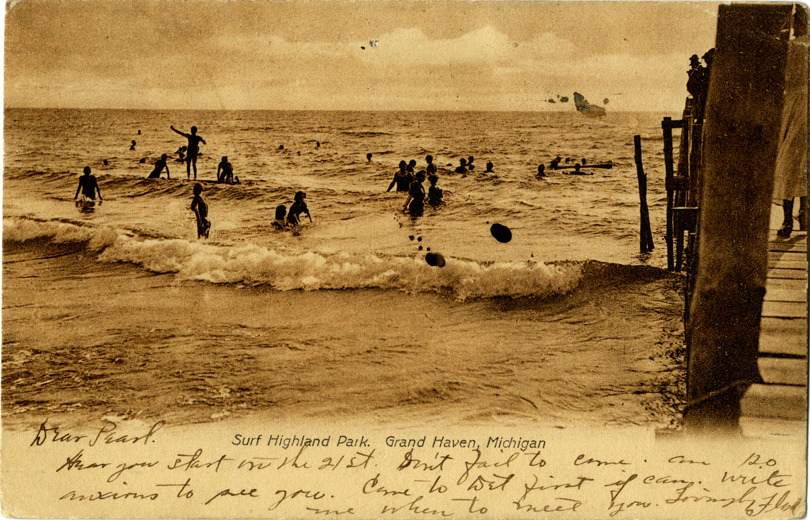 Surf Highland Park. Grand Haven, Michigan
Dear Pearl.
Hear you start on the 21st. Don't fail to come. am so
anxious to see you. Come to Det first if can. write
me when to meet you. Lovingly Flo